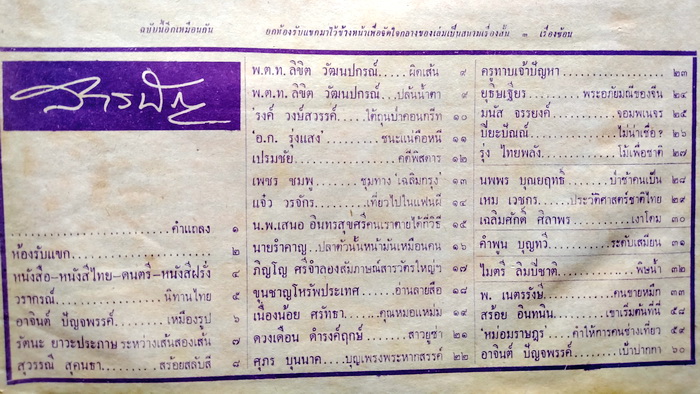 ฉบับนี้อีกเหมือนกัน ยกห้องรับแขกมาไว้ข้างหน้าเพื่อจัดใจกลางของเล่มเป็นสนามเรื่องสั้น ๓ เรื่องซ้อน
สารบัญ
คำแถลง ๑
ห้องรับแขก ๒
หนังสือ-หนังสือไทย-ดนตรี-หนังสือฝรั่ง ๔
วราภรณ์ นิทานไทย ๕
อาจินต์ ปัญจพรรค์ เหมืองรูป ๖
รัตนะ ยาวะประภาษ ระหว่างเส้นสองเส้น ๗
สุวรรณี สุคนธา สร้อยสลับสี ๘
พ.ต.ท. ลิขิต วัฒนปกรณ์ ผิดเส้น ๙
พ.ต.ท. ลิขิต วัฒนปกรณ์ ปล้นน้ำตา ๙
รงค์ วงษ์สวรรค์ ใต้ถุนป่าคอนกรีท ๑๐
'อ.ก. รุ่งแสง' ชนะแน่คือหนี ๑๑
เปรมชัย คดีพิสดาร ๑๒
เพชร ชมพู ชุมทาง 'เฉลิมกรุง' ๑๓
แจ๋ว วรจักร เที่ยวไปในแฟนผี ๑๔
น.พ.เสนอ อินทรสุขศรี คนเราตายได้กี่วิธี ๑๕
นายรำคาญ ปลาตัวนั้นหน้ามันเหมือนคน ๑๖
ภิญโญ ศรีจำลอง สัมภาษณ์สารวัตรใหญ่ฯ ๑๗
ขุนชาญโหรัพประเทศ อ่านลายสือ ๑๘
เนื่องน้อย ศรัทธา คุณหอมแหม่ม ๑๙
ดวงเดือน ดำรงค์ฤกษ์ สาวยูซ่า ๒๑
ศุภร บุนนาค บุญเพรงพระหากสรรค์ ๒๒
ครูทาบเจ้าปัญหา ๒๓
ยุธิษเฐียร พระอภัยมณีของจีน ๒๔
มนัส จรรยงค์ จอมพเนจร ๒๕
ปิยะปัณณ์ ไม่น่าเชื่อ? ๒๖
รุ่ง ไทยพลัง โม้เพื่อชาติ ๒๗
นพพร บุณยฤทธิ์ ป่าช้าคนเป็น ๒๘
เหม เวชกร ประวัติศาสตร์ชาติไทย ๒๙
เฉลิมศักดิ์ ศิลาพร เงาโดม ๓๐
คำพูน บุญทวี ระดับเสมียน ๓๑
ไมตรี ลิมปิชาติ พิษน้ำ ๓๒
พ. เนตรรังษี คนขายหมึก ๓๓
สร้อย อินทนิน เขาเริ่มต้นที่นี่ ๕๘
'หม่อมราษฎร' คำให้การคนช่างเที่ยว ๕๙
อาจินต์ ปัญจพรรค์ เป้าปากกา ๖๐